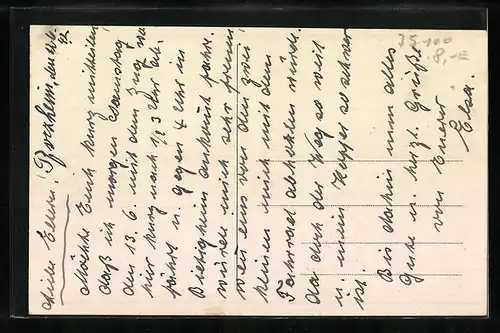 Meine Lieben! Pforzheim, den 12.6.
Möchte Euch kurz mitteilen,
daß ich morgen Samstag
den 13. 6. mit dem Zug der
hier kurz nach 1/2 3 Uhr ab-
fährt u. gegen 4 Uhr in
Bietigheim ankommt fahre.
Würde mich sehr freuen
wenn eins von den zwei
keinen mich mit dem
Fahrrad abholen würde.
da doch der Weg so weit
u. mein Koffer so schwer
ist.
Bis dahin nun alles
Gute u. herzl. Grüße
von Eurer
Elsa.
75-100
8,-E